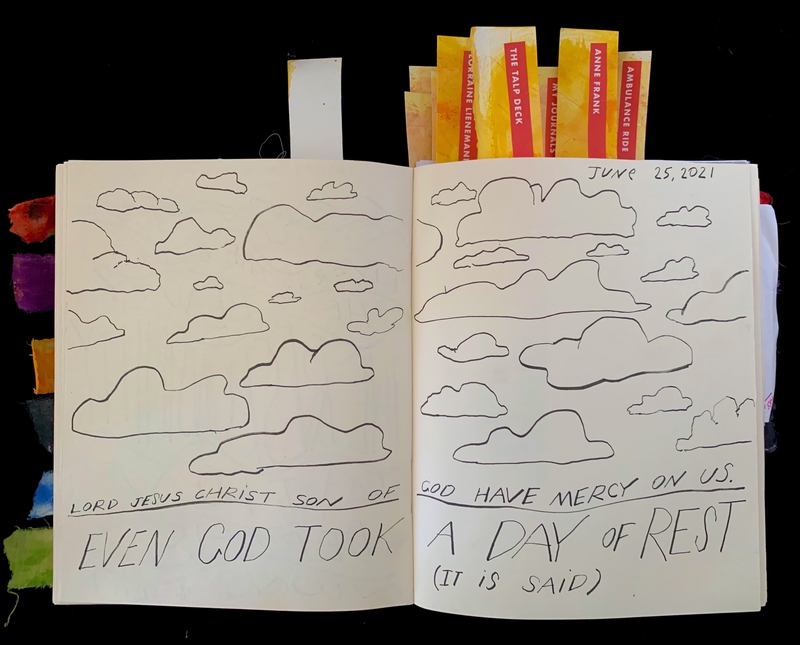 LORRAINE LIENEMANN
THE TALP DECK
MY JOURNALS
ANNE FRANK
AMBULANCE RIDE
JUNE 25, 2021
LORD JESUS CHRIST SON OF GOD HAVE MERCY ON US.
EVEN GOD TOOK A DAY OF REST
(IT IS SAID)